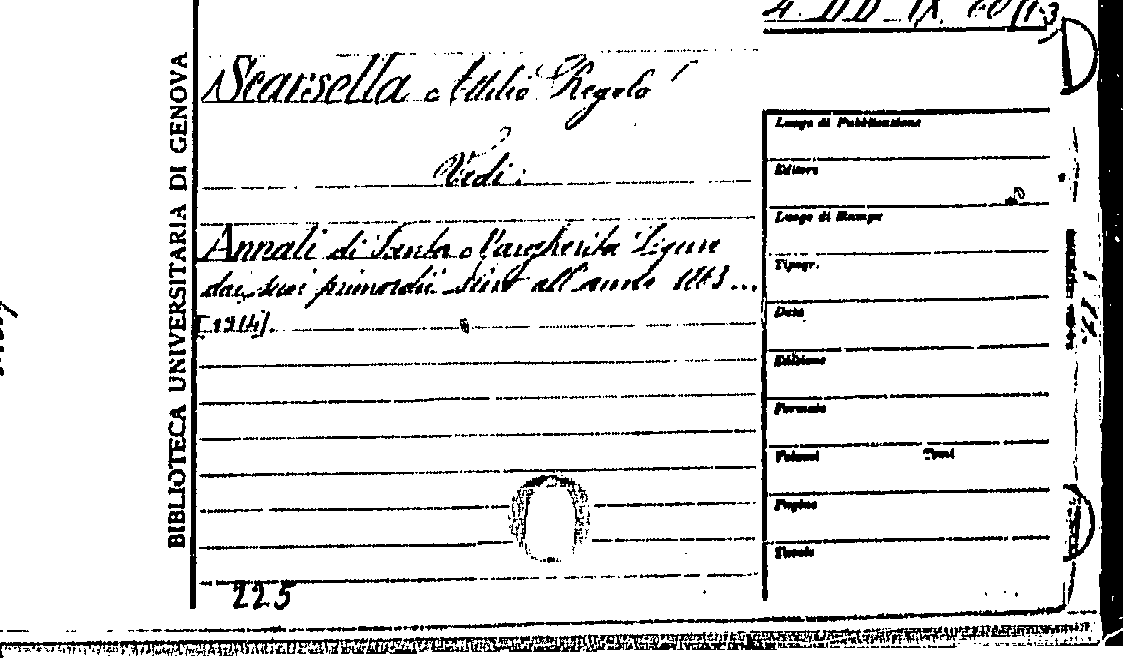 4. DD. IX. 60/1-3
BIBLIOTECA UNIVERSITARIA DI GENOVA
Scarsella Attilio Regolo
Vedi:
Annali di Santa Margherita Ligure
dai suoi primordii sino all'anno 1863...
[1914].
225
Luogo di Pubblicazione
Editore
Luogo di Stampa
Tipogr.
Data
Edizione
Formato
Volumi Tomi
Pagine
Tavole